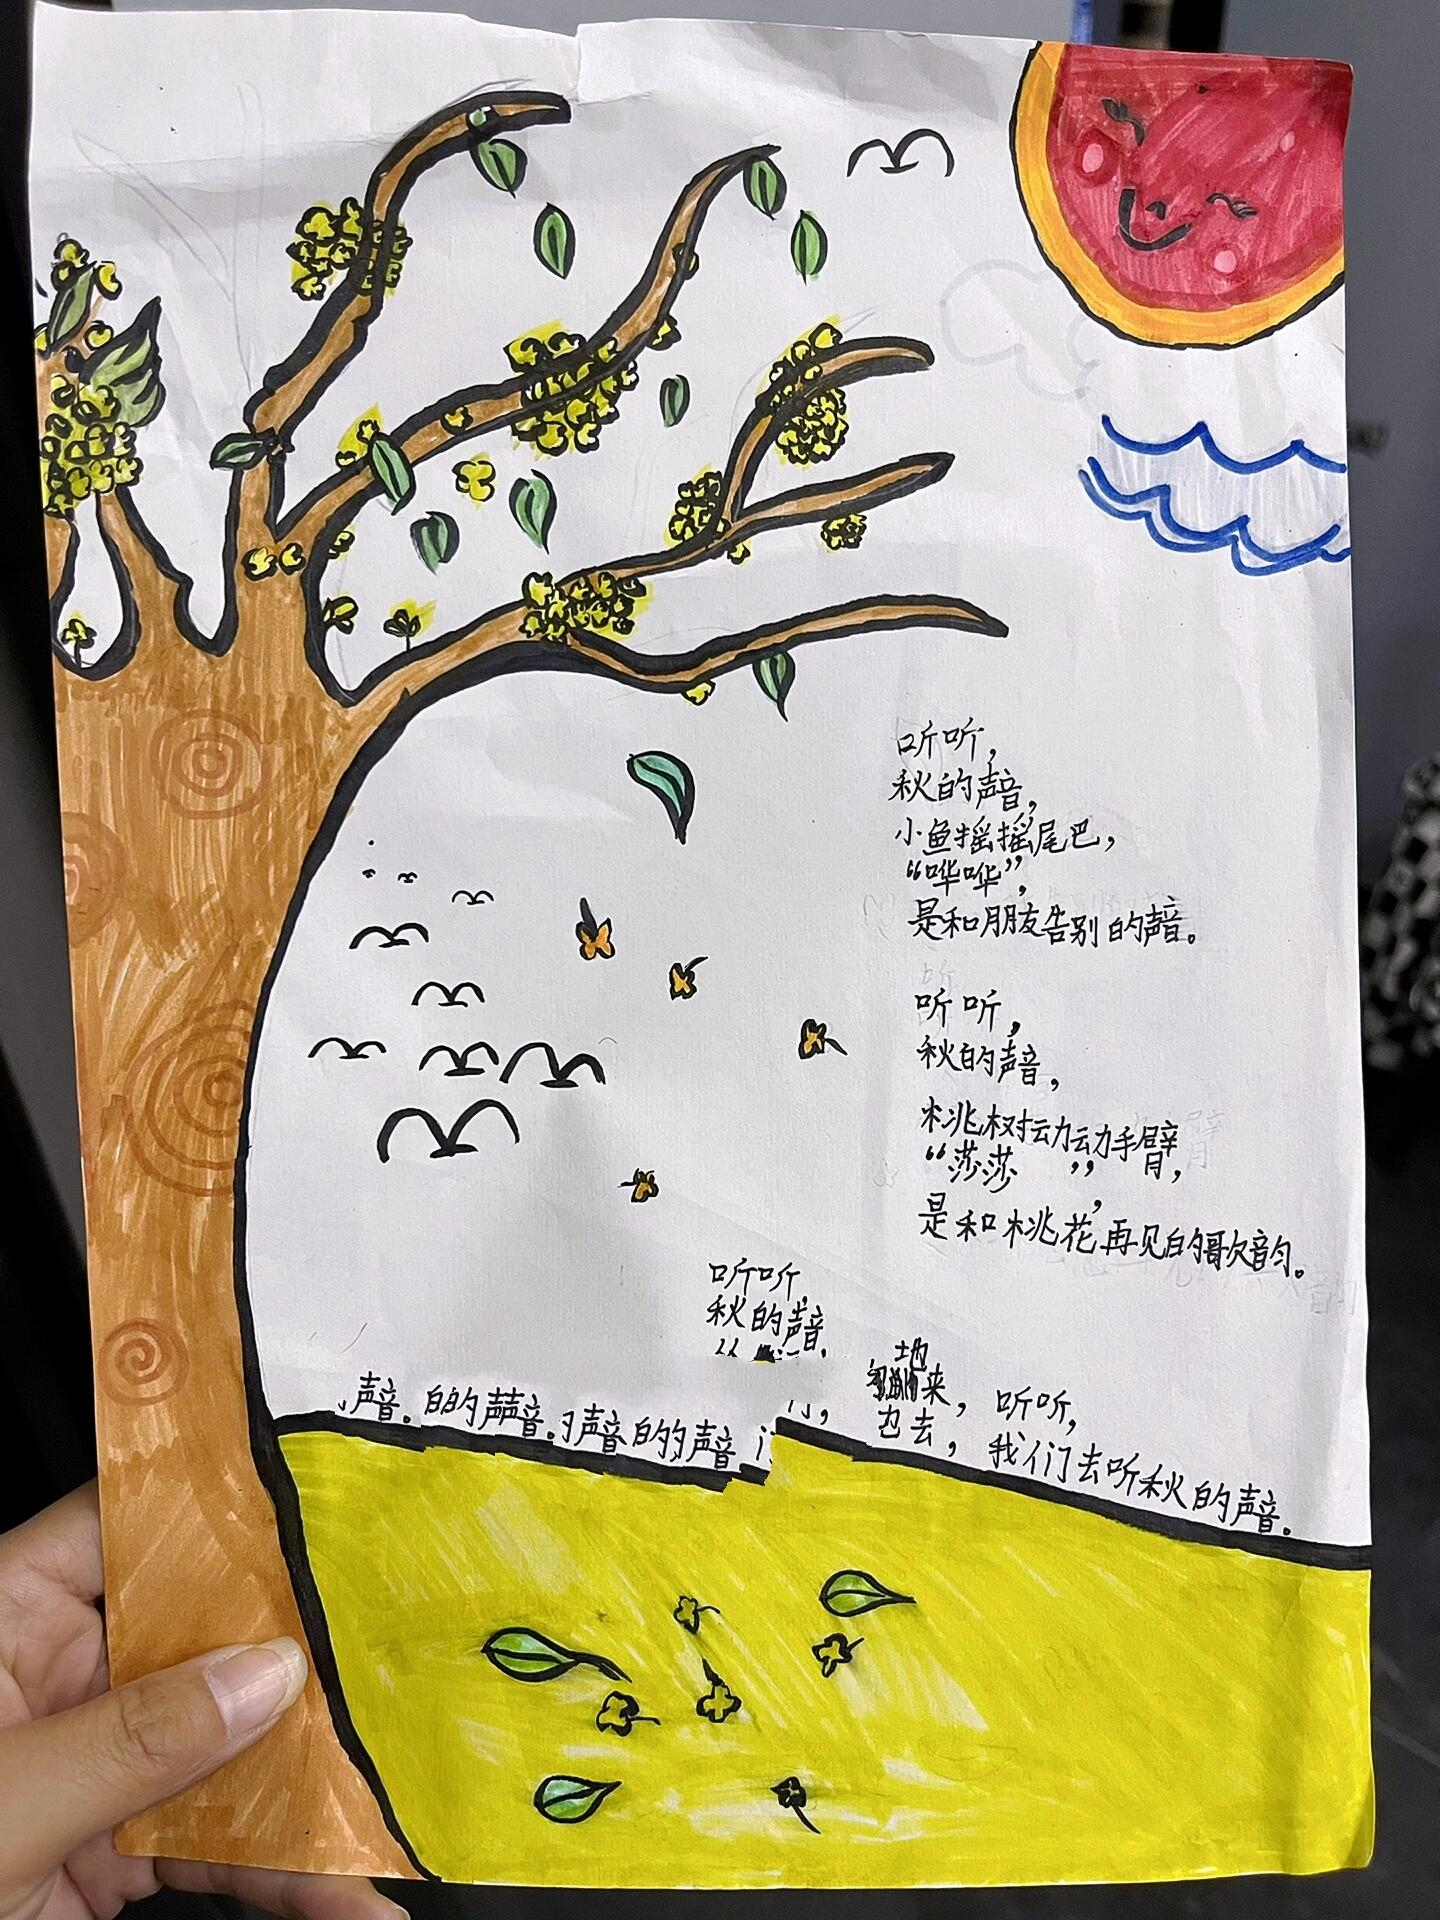 听听，
秋的声音，
小鱼摇摇尾巴，
“哗哗”，
是和朋友告别的声音。
听听，
秋的声音，
桃树动动手臂
“莎莎”，
是和桃花再见的歌韵。
听听，
秋的声音，
声音。的声音。声音的声音
地
来，听听，
去，我们去听秋的声音。